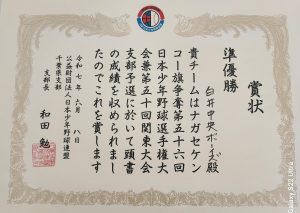 賞状
準優勝
白井中央ボーイズ殿
貴チームはナガセケン
コー旗争奪第五十六回
日本少年野球選手権大
会兼第五十回関東大会
支部予選に於いて頭書
の成績を収められまし
たのでこれを賞します
令和七年六月八日
公益財団法人日本少年野球連盟
千葉県支部
支部長 和田勉
Galaxy S22 Ultra